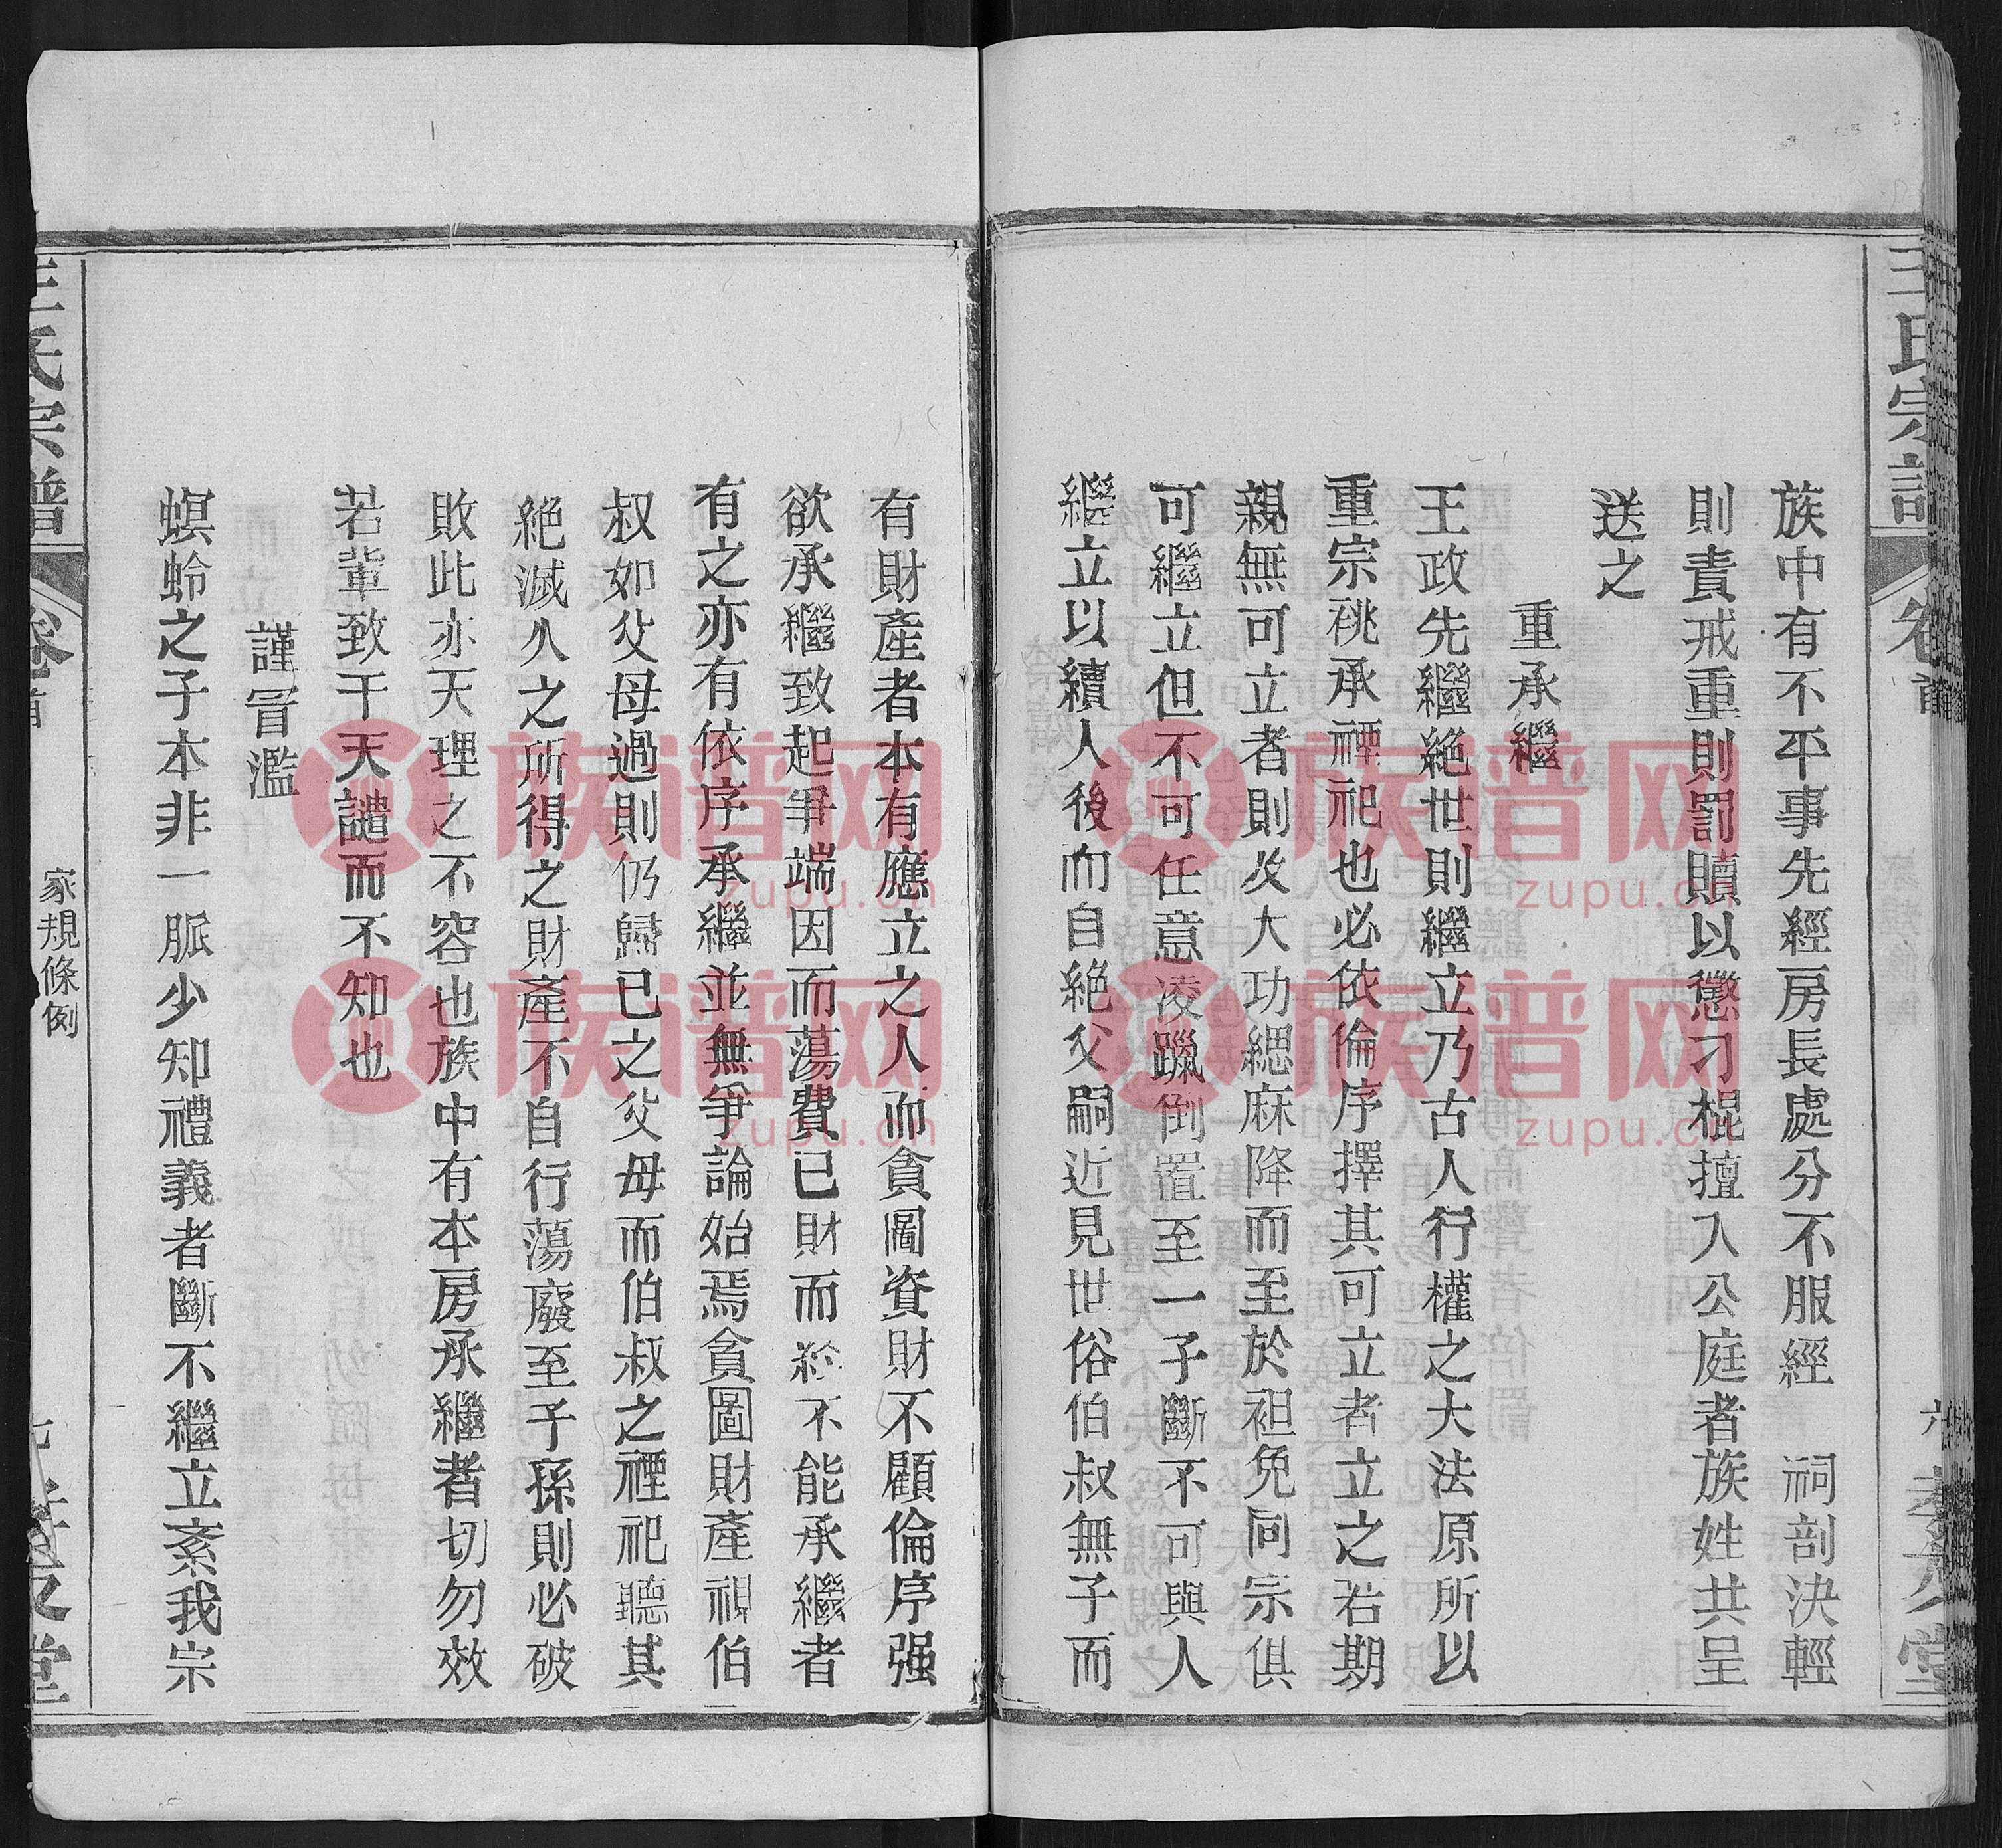 王氏宗譜
卷首
六
孝友堂
族中有不平事先經房長處分不服經 祠剖決輕
則責戒重則罰贖以懲刁棍擅入公庭者族姓共呈
送之
重承繼
王政先繼絶世則繼立乃古人行權之大法原所以
重宗祧承禋祀也必依倫序擇其可立者立之若期
親無可立者則及大功緦麻降而至於袒免同宗俱
可繼立但不可任意凌躐倒置至一子斷不可與人
繼立以續人後而自絶父嗣近見世俗伯叔無子而
有財產者本有應立之人而貪圖資財不顧倫序强
欲承繼致起爭端因而蕩費已財而終不能承繼者
有之亦有依序承繼並無爭論始焉貪圖財產視伯
叔如父母過則仍歸已之父母而伯叔之禋祀聽其
絶滅人之所得之財產不自行蕩廢至子孫則必破
敗此亦天理之不容也族中有本房承繼者切勿效
若輩致干天譴而不知也
謹冒濫
螟蛉之子本非一脈少知禮義者斷不繼立紊我宗
王氏宗譜
卷首
家規條例
堂
族谱网
zupu.cn
族谱网
zupu.cn
族谱网
zupu.cn
族谱网
zupu.cn